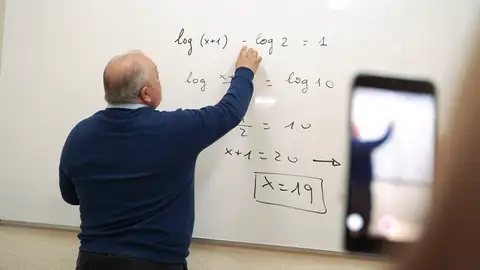 log (x+1) - log 2 = 1
log = log 10
2 = 10
x+1 = 20 →
x = 19